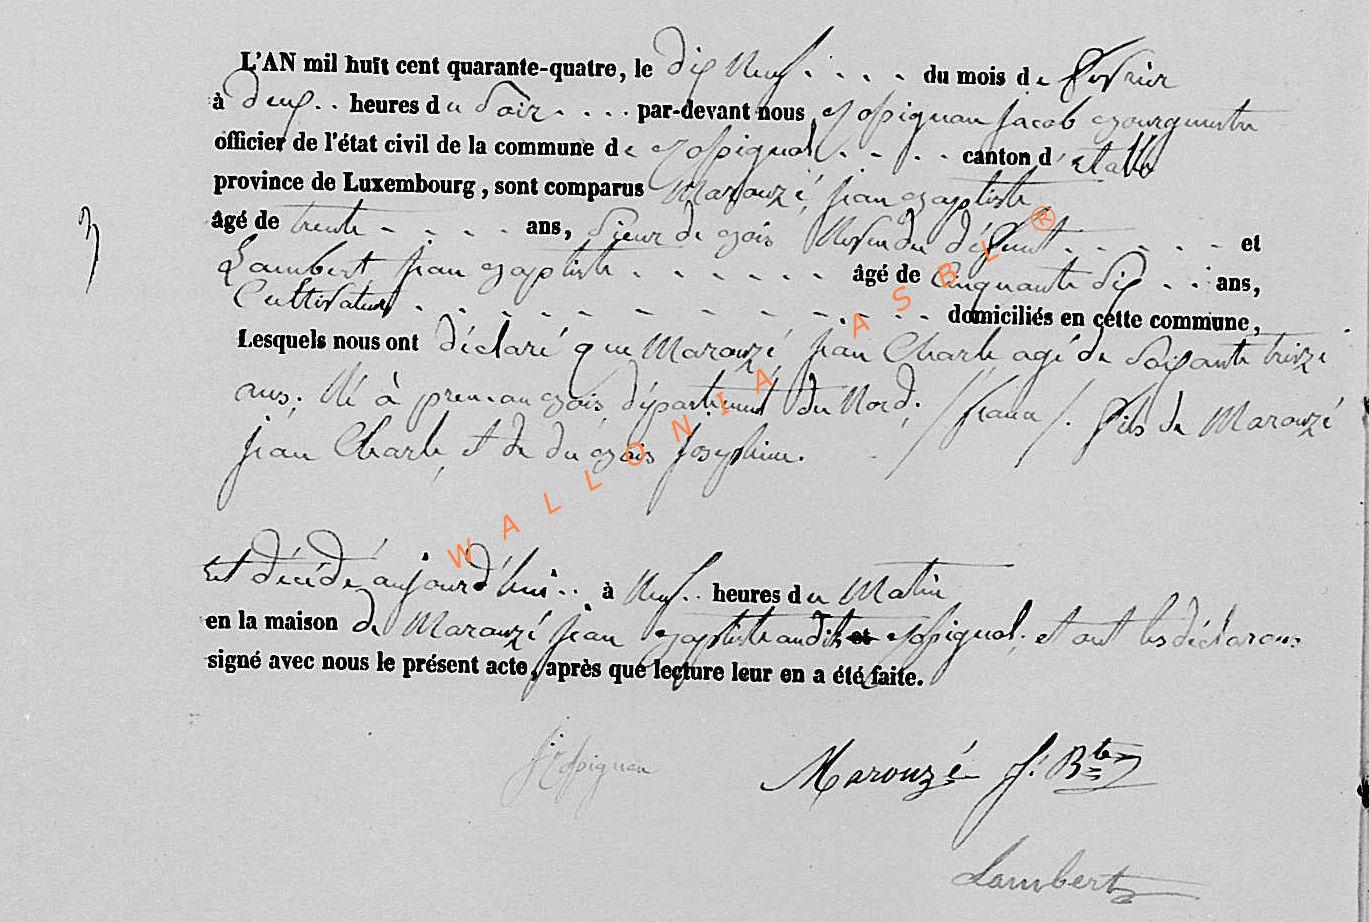 L'AN mil huit cent quarante-quatre, le dix Neuf . . . . du mois de fevrier
à deux . . heures du Soir . . . . par-devant nous Jacob Bourgumestre
officier de l'état civil de la commune de . . . . canton d'étalle
province de Luxembourg, sont comparus Marouzé jean Baptiste
âgé de trente - - - - ans, Sieur de Bois du défunt . - - - - et
Lambert jean Baptiste . . . . . . . âgé de Cinquante dix . . . ans,
Cultivateur . - - - - - - - - - . - - - domiciliés en cette commune,
Lesquels nous ont déclaré que Marouzé jean Charle agé de Soixante treize
ans, Né à département du Nord, / france /. fils de Marouzé
jean Charle, et de du Bois Josephine.
Est décédé aujourd'hui . . à Neuf . . heures du Matin
en la maison de Marouzé jean Baptiste audit et ont les déclarans
signé avec nous le présent acte, après que lecture leur en a été faite.
Marouzé J. Bte
Lambert
WALLONIA ASBL ®